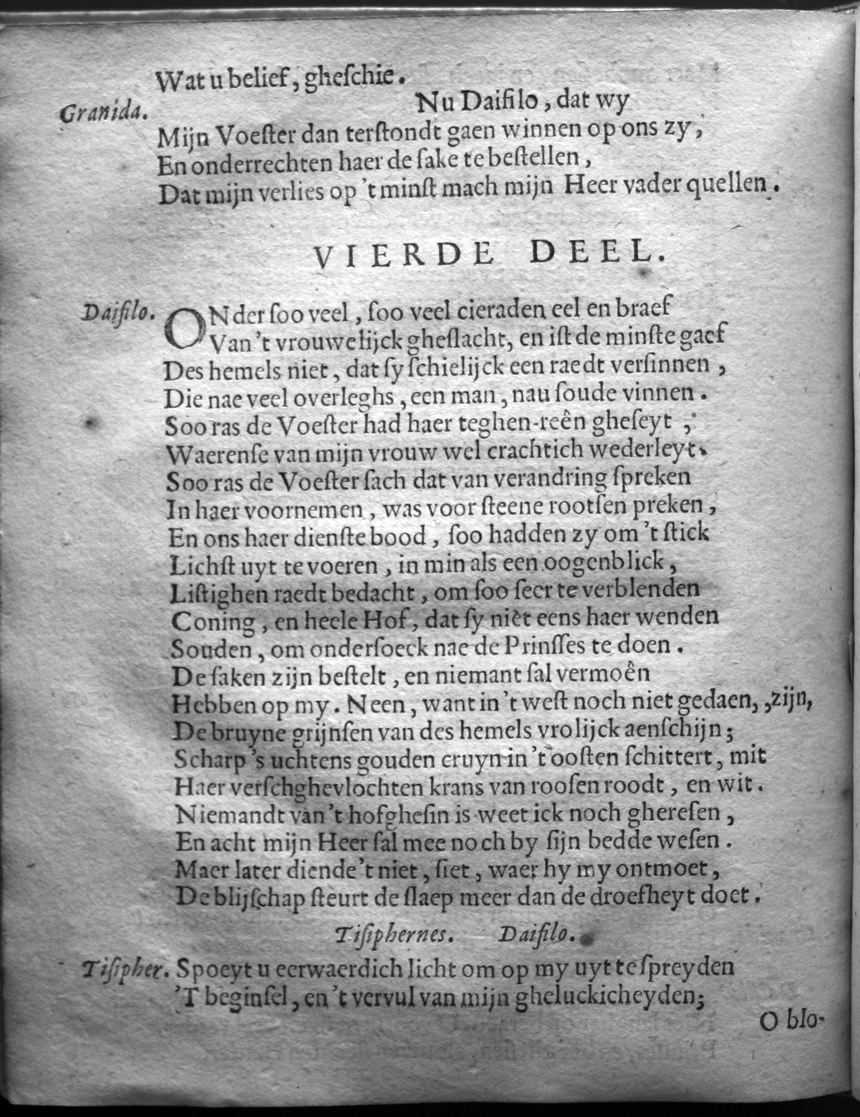 Wat u belief, gheſchie.
Granida. Nu Daifilo, dat wy
Mijn Voeſter dan terſtondt gaen winnen op ons zy,
En onderrechten haer de ſake te beſtellen,
Dat mijn verlies op 't minſt mach mijn Heer vader quellen.
VIERDE DEEL.
Daifilo. ONder ſoo veel, ſoo veel cieraden eel en braef
Van 't vrouwelijck gheſlacht, en iſt de minſte gaef
Des hemels niet, dat ſy ſchielijck een raedt verſinnen,
Die nae veel overleghs, een man, nau ſoude vinnen.
Soo ras de Voeſter had haer teghen-reên gheſeyt,
Waerenſe van mijn vrouw wel crachtich wederleyt.
Soo ras de Voeſter ſach dat van verandring ſpreken
In haer voornemen, was voor ſteene rootſen preken,
En ons haer dienſte bood, ſoo hadden zy om 't ſtick
Lichſt uyt te voeren, in min als een oogenblick,
Liſtighen raedt bedacht, om ſoo ſeer te verblenden
Coning, en heele Hof, dat ſy nièt eens haer wenden
Souden, om onderſoeck nae de Prinſſes te doen.
De ſaken zijn beſtelt, en niemant ſal vermoên
Hebben op my. Neen, want in 't weſt noch niet gedaen, ,zijn,
De bruyne grijnſen van des hemels vrolijck aenſchijn;
Scharp 's uchtens gouden cruyn in 't ooſten ſchittert, mit
Haer verſchghevlochten krans van rooſen roodt, en wit.
Niemandt van 't hofgheſin is weet ick nochghereſen,
En acht mijn Heer ſal mee noch by ſijn bedde weſen.
Maer later diende 't niet, ſiet, waer hy my ontmoet,
De blijſchap ſteurt de ſlaep meer dan de droefheyt doet.
Tiſiphernes. Daifilo.
Tiſipher. Spoeyt u eerwaerdich licht om op my uyt te ſpreyden
'T beginſel, en 't vervul van mijn gheluckicheyden;
O blo-